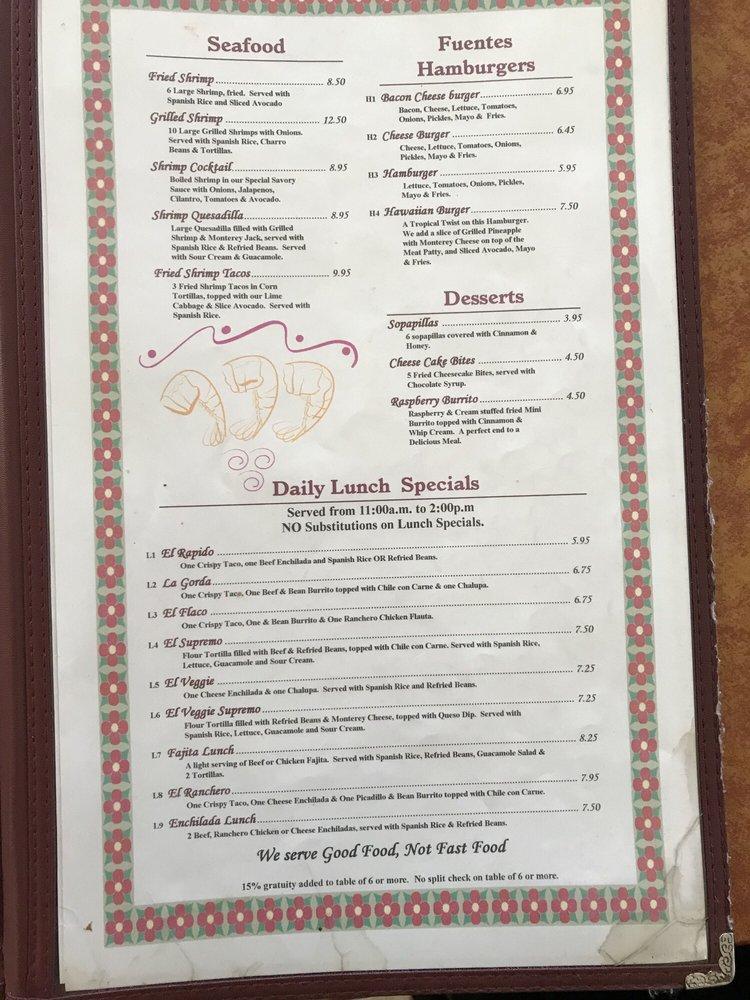 Seafood
Fried Shrimp 8.50
6 Large Shrimp, fried. Served with
Spanish Rice and Sliced Avocado
Grilled Shrimp 12.50
10 Large Grilled Shrimps with Onions.
Served with Spanish Rice, Charro
Beans & Tortillas.
Shrimp Cocktail 8.95
Boiled Shrimp in our Special Savory
Sauce with Onions, Jalapenos,
Cilantro, Tomatoes & Avocado.
Shrimp Quesadilla 8.95
Large Quesadilla filled with Grilled
Shrimp & Monterey Jack, served with
Spanish Rice & Refried Beans. Served
with Sour Cream & Guacamole.
Fried Shrimp Tacos 9.95
3 Fried Shrimp Tacos in Corn
Tortillas, topped with our Lime
Cabbage & Slice Avocado. Served with
Spanish Rice.
Fuentes
Hamburgers
H1 Bacon Cheese burger 6.95
Bacon, Cheese, Lettuce, Tomatoes,
Onions, Pickles, Mayo & Fries.
H2 Cheese Burger 6.45
Cheese, Lettuce, Tomatoes, Onions,
Pickles, Mayo & Fries.
H3 Hamburger 5.95
Lettuce, Tomatoes, Onions, Pickles,
Mayo & Fries.
H4 Hawaiian Burger 7.50
A Tropical Twist on this Hamburger.
We add a slice of Grilled Pineapple
with Monterey Cheese on top of the
Meat Patty, and Sliced Avocado, Mayo
& Fries.
Desserts
Sopapillas 3.95
6 sopapillas covered with Cinnamon &
Honey.
Cheese Cake Bites 4.50
5 Fried Cheesecake Bites, served with
Chocolate Syrup.
Raspberry Burrito 4.50
Raspberry & Cream stuffed fried Mini
Burrito topped with Cinnamon &
Whip Cream. A perfect end to a
Delicious Meal.
Daily Lunch Specials
Served from 11:00a.m. to 2:00p.m
NO Substitutions on Lunch Specials.
L1 El Rapido 5.95
One Crispy Taco, one Beef Enchilada and Spanish Rice OR Refried Beans.
L2 La Gorda 6.75
One Crispy Taco, One Beef & Bean Burrito topped with Chile con Carne & one Chalupa.
L3 El Flaco 6.75
One Crispy Taco, One & Bean Burrito & One Ranchero Chicken Flauta.
L4 El Supremo 7.50
Flour Tortilla filled with Beef & Refried Beans, topped with Chile con Carne. Served with Spanish Rice,
Lettuce, Guacamole and Sour Cream.
L5 El Veggie 7.25
One Cheese Enchilada & one Chalupa. Served with Spanish Rice and Refried Beans.
L6 El Veggie Supremo 7.25
Flour Tortilla filled with Refried Beans & Monterey Cheese, topped with Queso Dip. Served with
Spanish Rice, Lettuce, Guacamole and Sour Cream.
L7 Fajita Lunch 8.25
A light serving of Beef or Chicken Fajita. Served with Spanish Rice, Refried Beans, Guacamole Salad &
2 Tortillas.
L8 El Ranchero 7.95
One Crispy Taco, One Cheese Enchilada & One Picadillo & Bean Burrito topped with Chile con Carne.
L9 Enchilada Lunch 7.50
2 Beef, Ranchero Chicken or Cheese Enchiladas, served with Spanish Rice & Refried Beans.
We serve Good Food, Not Fast Food
15% gratuity added to table of 6 or more. No split check on table of 6 or more.